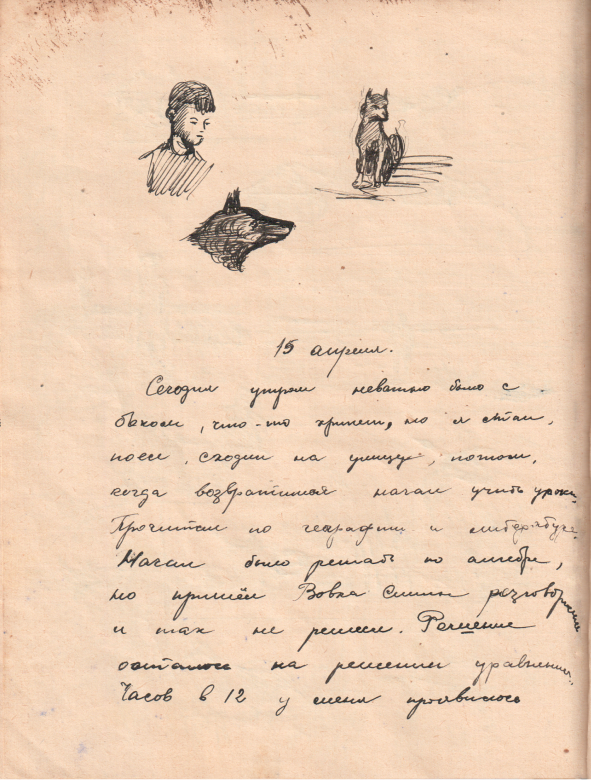 15 апреля.
Сегодня утром неважно было с
боком, что-то хрипит, но я встал,
поел, сходил на улицу, потом,
когда возвратился начал учить уроки.
Прочитал по географии и
Начал было решать по алгебре,
но пришёл Вовка разговорились
и так не решил. Решение
осталось на решении уравнений.
Часов в 12 у меня появилось